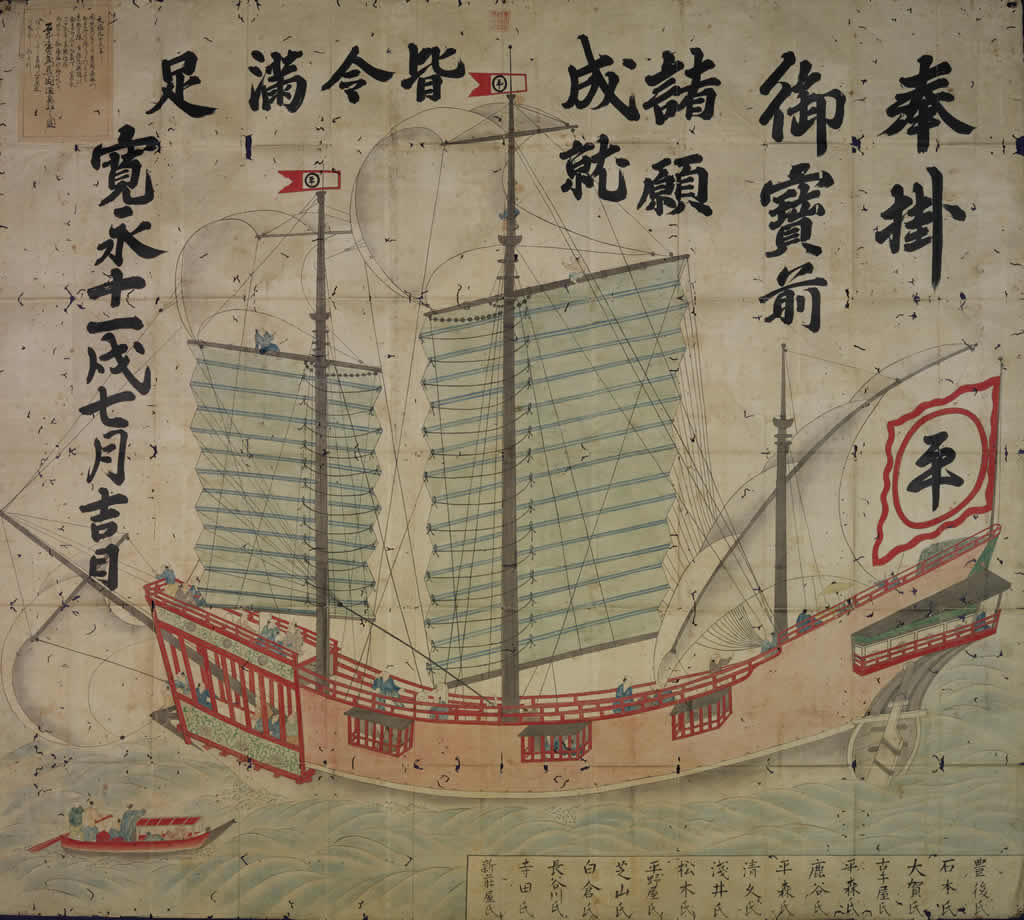 奉掛
御寳前
諸願
成就
皆令満足
寛永十一戌七月吉日
平
豊後氏
石本氏
大賀氏
吉千屋氏
平森氏
鹿谷氏
平森氏
清久氏
浅井氏
松木氏
平野屋氏
芝山氏
白倉氏
長谷川氏
寺田氏
新莊屋氏